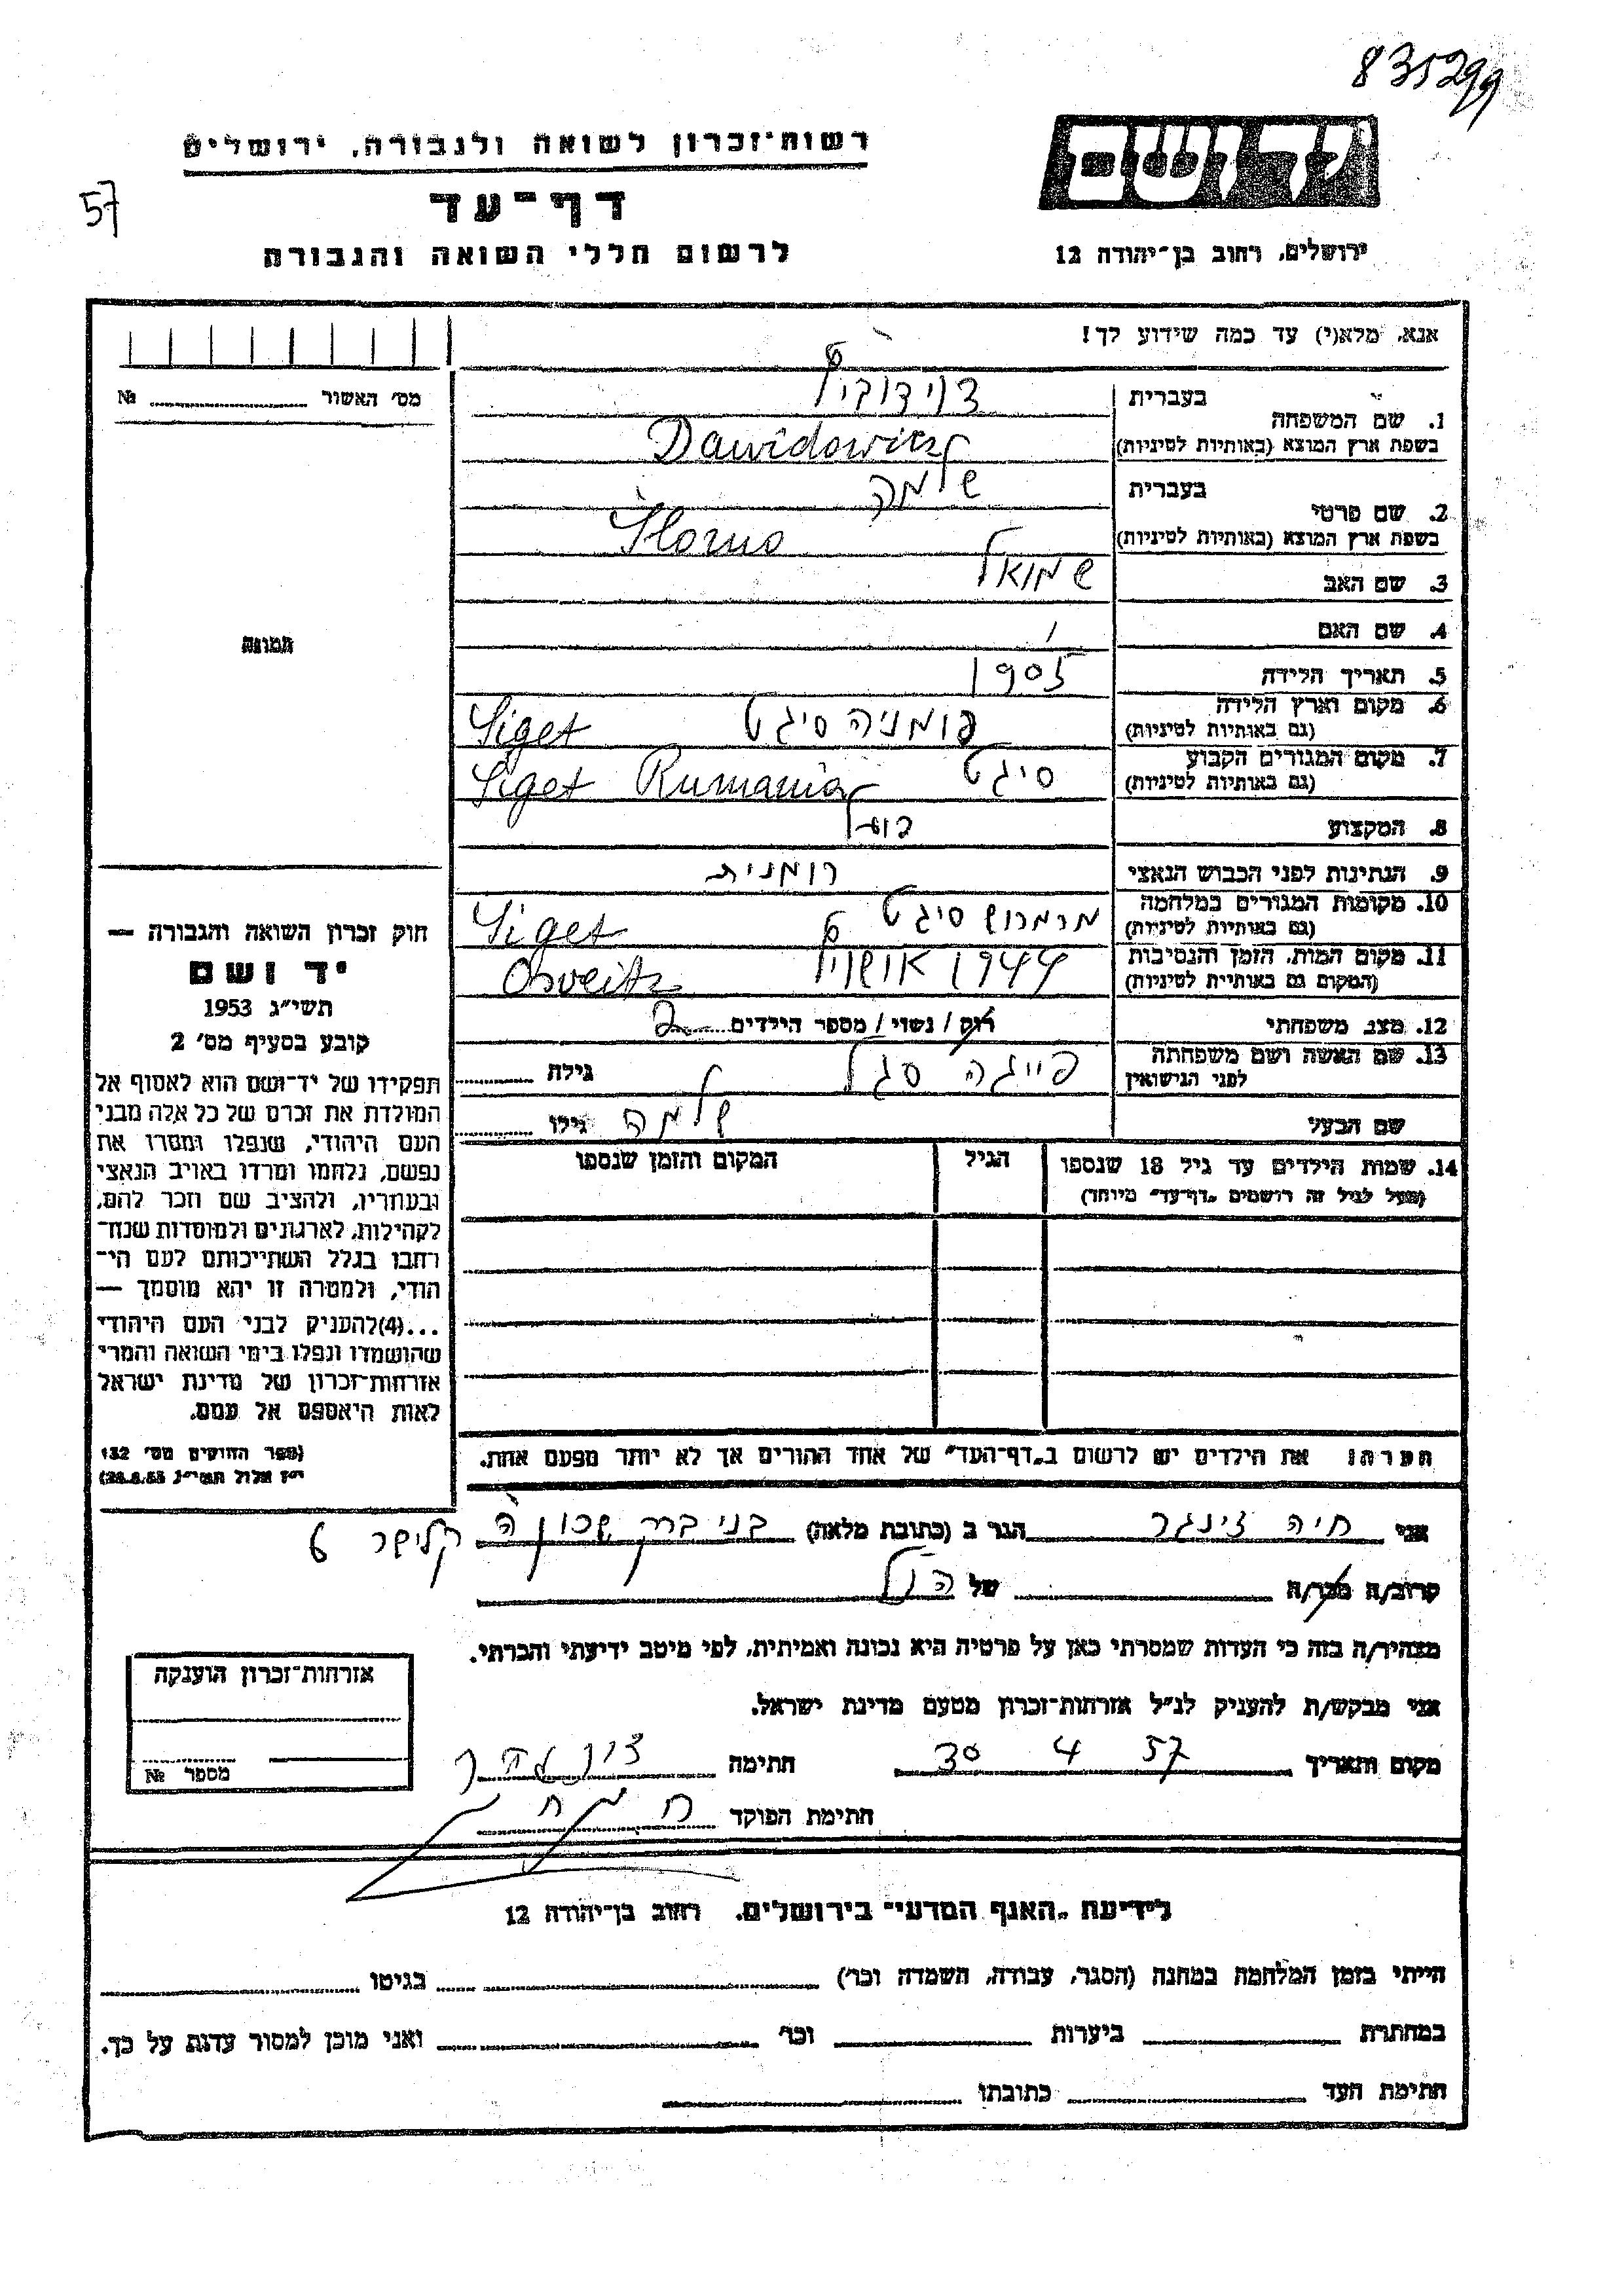 835299
רשות־זכרון לשואה ולגבורה, ירושלים
57
דף־עד
לרשום חללי השואה והגבורה
ירושלים, רחוב בן־יהודה 12
אנא, מלא(י) עד כמה שידוע לך!
מס׳ האשור № 
1. שם המשפחה
בעברית
דוידוביץ
בשפת ארץ המוצא (באותיות לטיניות)
Dawidowitz
2. שם פרטי
בעברית
שלמה
בשפת ארץ המוצא (באותיות לטיניות)
3. שם האב שמואל
4. שם האם
5. תאריך הלידה 1905
6. מקום וארץ הלידה רומניה סיגט Siget
(גם באותיות לטיניות)
7. מקום המגורים הקבוע סיגט Siget Rumania
(גם באותיות לטיניות)
8. המקצוע
9. הנתינות לפני הכבוש הנאצי רומנית
10. מקומות המגורים במלחמה מרמרוש סיגט Siget
(גם באותיות לטיניות)
11. מקום המות, הזמן והנסיבות 1944 אושויץ Osveitz
(המקום גם באותיית לטיניות)
12. מצב משפחתי רוק / נשוי / מספר הילדים 2
13. שם האשה ושם משפחתה פייגה סגל גילה
לפני הנישואין
שם הבעל שלמה גילו
14. שמות הילדים עד גיל 18 שנספו הגיל המקום והזמן שנספו
(מעל לגיל זה רושמים „דף־עד״ מיוחד)
תמונה
חוק זכרון השואה והגבורה —
יד ושם
תשי״ג 1953
קובע בסעיף מס׳ 2
תפקידו של יד־ושם הוא לאסוף אל
המולדת את זכרם של כל אלה מבני
העם היהודי, שנפלו ומסרו את
נפשם, נלחמו ומרדו באויב הנאצי
ובעוזריו, ולהציב שם וזכר להם,
לקהילות, לארגונים ולמוסדות שנח־
רחבו בגלל השתייכותם לעם הי־
הודי, ולמטרה זו יהא מוסמך —
...(4)להעניק לבני העם היהודי
שהושמדו ונפלו בימי השואה והמרי
אזרחות־זכרון של מדינת ישראל
לאות היאספם אל עמם.
(ספר החוקים מס׳ 132
י״ז אלול תשי״ג, 28.8.53)
הערה: את הילדים יש לרשום ב„דף־העד״ של אחד ההורים אך לא יותר מפעם אחת.
אני חיה צינגר הגר ב (כתובת מלאה) בני ברק שכון ה קלישר 6
קרוב/ה מכר/ה של הנ״ל
מצהיר/ה בזה כי העדות שמסרתי כאן על פרטיה היא נכונה ואמיתית, לפי מיטב ידיעתי והכרתי.
אני מבקש/ת להעניק לנ״ל אזרחות־זכרון מטעם מדינת ישראל.
מקום ותאריך 30 4 57 חתימה
חתימת הפוקד
אזרחות־זכרון הוענקה
מספר №
לידיעת „האגף המדעי״ בירושלים, רחוב בן־יהודה 12
הייתי בזמן המלחמה במחנה (הסגר, עבודה, השמדה וכו׳) בגיטו
במחתרת ביערות וכו׳ ואני מוכן למסור עדות על כך.
חתימת העד כתובתו